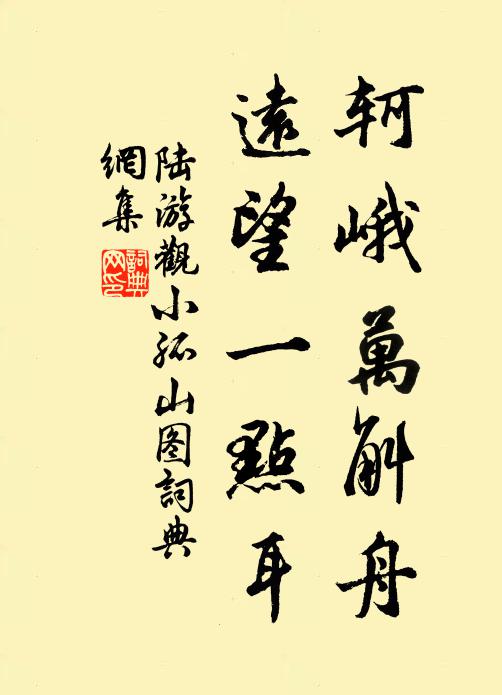 軻峨萬斛舟
遠望一點耳
陸游觀小孤山图詞典
網集
詞典网印